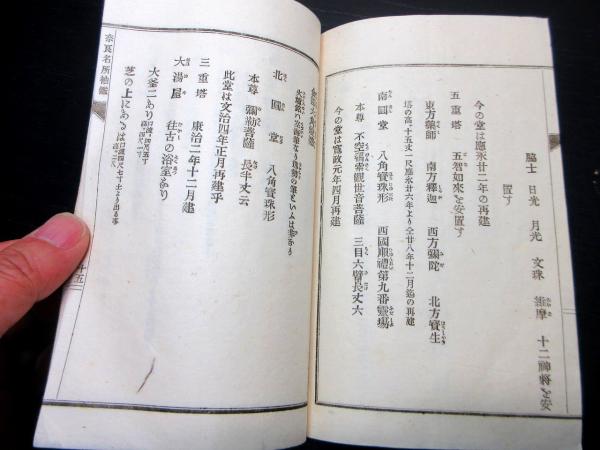 脇士 日光 月光 文珠 維摩 十二神将を安
置す
今の堂は應永廿二年の再建
五重塔 五智如來を安置す
東方藥師 南方釋迦 西方彌陀 北方寳生
塔の高十五丈一尺應永廿六年より仝廿八年十二月迄の再建
南圓堂 八角寳珠形 西國順禮第九番靈場
本尊 不空羂索觀世音菩薩 三目六臂長丈六
今の堂は寛政元年四月再建
北圓堂 八角寳珠形
本尊 彌勒菩薩 長半丈云
此堂は文治四年正月再建乎
三重塔 康治二年十二月建
大湯屋 往古の浴室なり
大釜二あり
芝の上にあるは
奈良名所獨鑑
十五